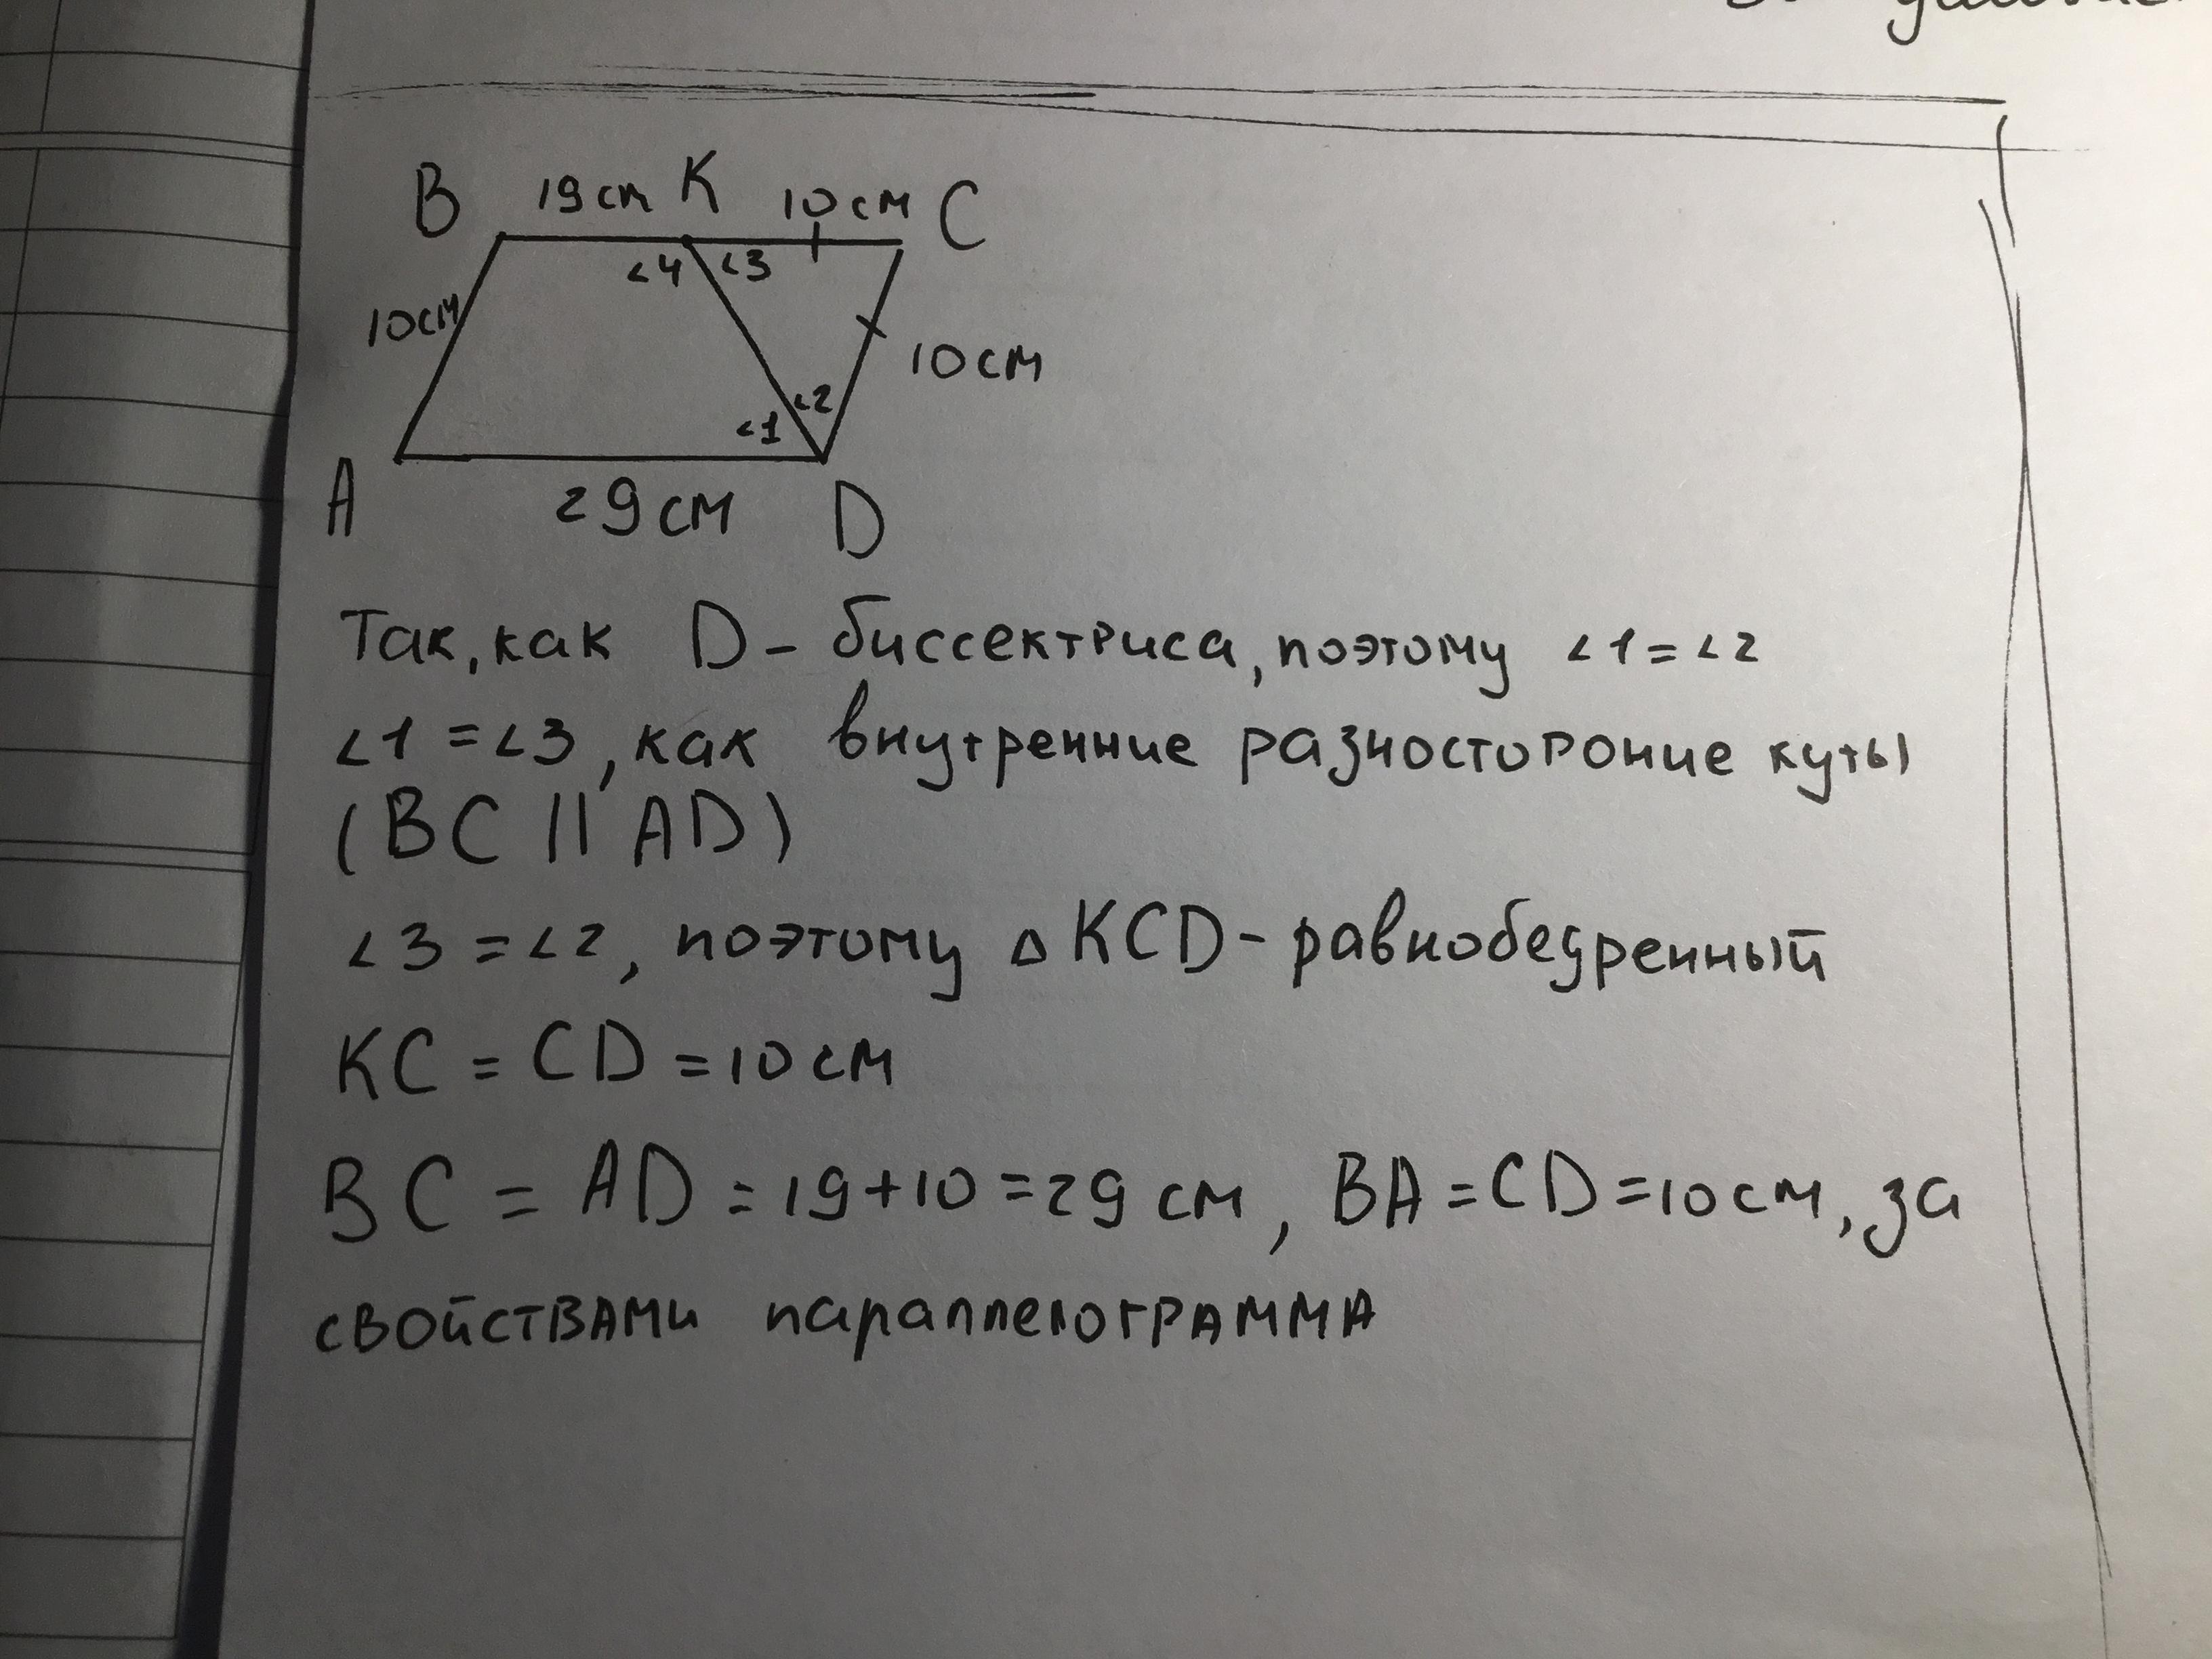 B 19см K 10см C
∠4 ∠3
10см
10см
∠2
∠1
A 29см D
Так, как D - биссектриса, поэтому ∠1 = ∠2
∠1 = ∠3, как внутренние разностороние куты
(BC || AD)
∠3 = ∠2, поэтому △ KCD - равнобедренный
KC = CD = 10 см
BC = AD = 19 + 10 = 29 см, BA = CD = 10 см, за
свойствами параллелограмма